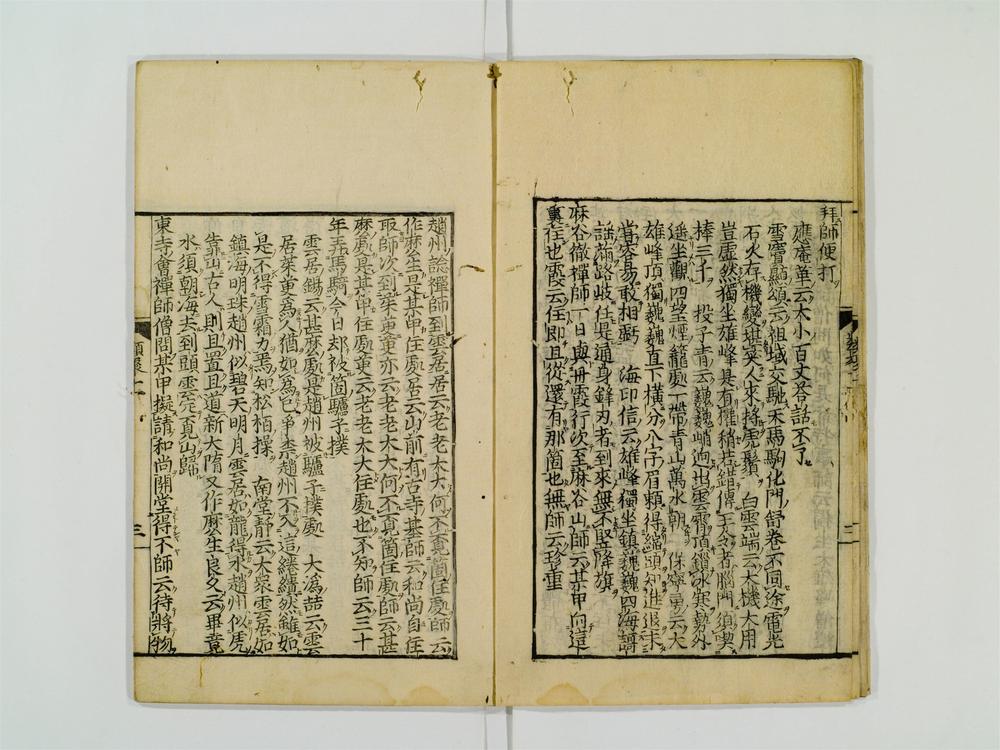 拜師便打
應庵華云大小百丈答話不了
雪竇顯頌云祖域交馳天馬駒化門舒卷不同途電光
石火存機變堪笑人來捋虎鬚　白雲端云大機大用
豈虛然獨坐雄峰是有權
棒三千　投子青云巍巍峭迥出雲霄頂鎖冰寒勢外
遙坐觀四望煙籠處一帶青山萬水朝　保寧勇云大
雄峰頂獨巍巍直下橫分八字眉類得綿頭知進退未
當容易敢相虧　海印信云雄峰獨坐鎮巍巍四海謳
謠滿路岐任是通身鋒刃者到來無不豎降旗
麻谷徹禪師一日與丹霞行次至麻谷山師云某甲向這
裏住也霞云住即且從還有那箇也無師云珍重
趙州諗禪師到雲居居云老老大大何不覓箇住處師云
作麼生是某甲住處居云山前有古寺基師云和尚自住
取師又到茱萸萸亦云老老大大何不覓箇住處師云甚
麼處是某甲住處萸云老老大大住處也不知師云三十
年弄馬騎今日却被箇驢子撲
雲居錫云甚麼處是趙州被驢子撲處　大溈喆云雲
居茱萸為人猶如為己爭柰趙州不入這繾繢然雖如
是不得雪霜力焉知松柏操　南堂靜云大衆雲居如
鎮海明珠趙州似碧天明月雲居如龍得水趙州似虎
靠山古人則且置且道新大隋又作麼生良久云畢竟
水須朝海去到頭雲定覓山歸
東寺會禪師僧問某甲擬請和尚開堂得不師云待將物
頌
三
三